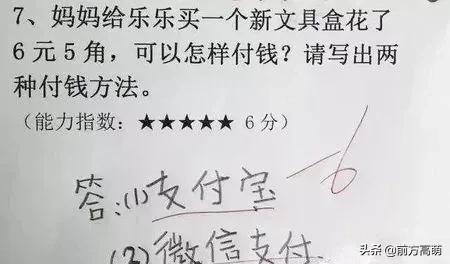 7、妈妈给乐乐买一个新文具盒花了
6元5角，可以怎样付钱？请写出两
种付钱方法。
（能力指数：★★★★★ 6分）
答：(1)支付宝 -6
(2)微信支付.
头条 @前方高萌